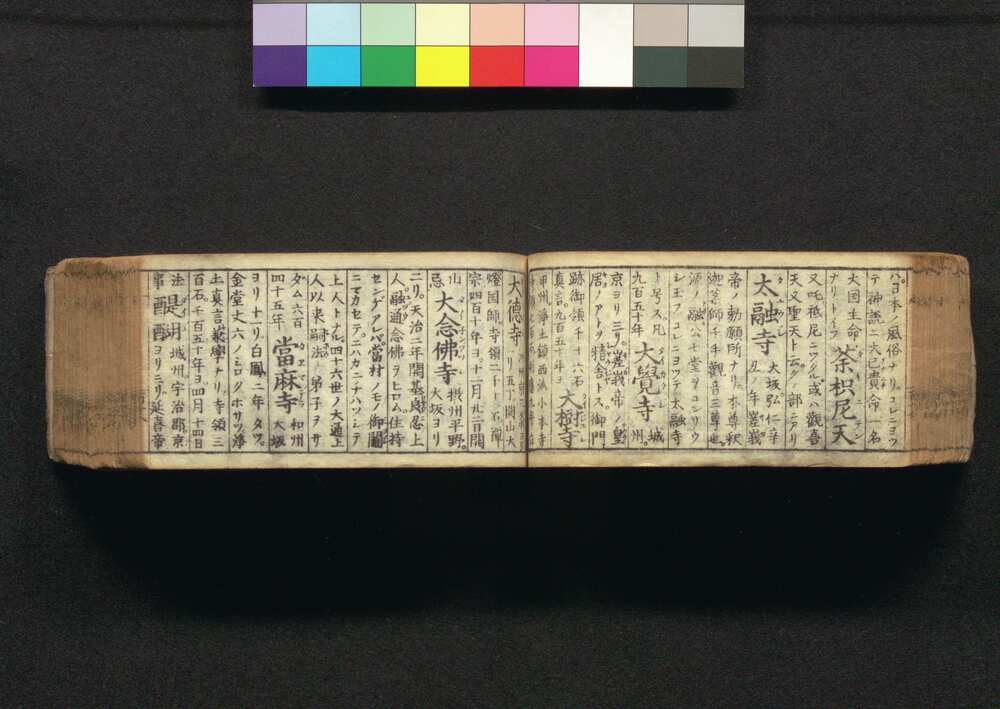 ハ日本ノ風俗ナリ。コレニヨツ
テ神説ニ大己貴命一名
大国生命 荼枳尼天
ナリトイフ
又吒祇尼ニツクル或ハ觀喜
天又聖天ト云ツノ部ニアリ
太融寺 大坂弘仁十
二ノ年嵯峨
帝ノ勅願所ナリ。本尊釈
迦菩師千手觀音三尊也
源ノ融公七堂ヲコンリウ
レ玉フコレニヨツテ太融寺
ト号ス凡 大覺寺 城
九百五十年 州。
京ヨリ三十丁。嵯峨帝ノ皇
居ノアトヲ特舎トス。御門
跡御領千十六石 大樹寺
真言。九百五十年ヨ
甲州。淨土鎮西派小本寺
大德寺
ヨリ五丁開山大
燈国師寺領二千十石禪
宗四百十八年ヨ。十二月九二日開
山 大念佛寺 摂州平野。
忌 大坂ヨリ
二リ。天治二年開基良忍上
人融通念佛ヲヒロム。住持
センゲアレバ當村ノモノ御鬮
ニマカセテニハカニテハツシテ
上人トナル四十六世ノ大通上
人以来嗣法ノ弟子ヲサ
ダム六百 當麻寺 和州
四十五年 大坂
ヨリ十リ。白鳳二年タツ。
金堂丈六ノミロクボサツ淨
土真言兼學ナリ寺領三
百石。千百五十年ヨ四月十四日
法 醍醐 城州宇治郡京
事 ヨリ二リ。延喜帝